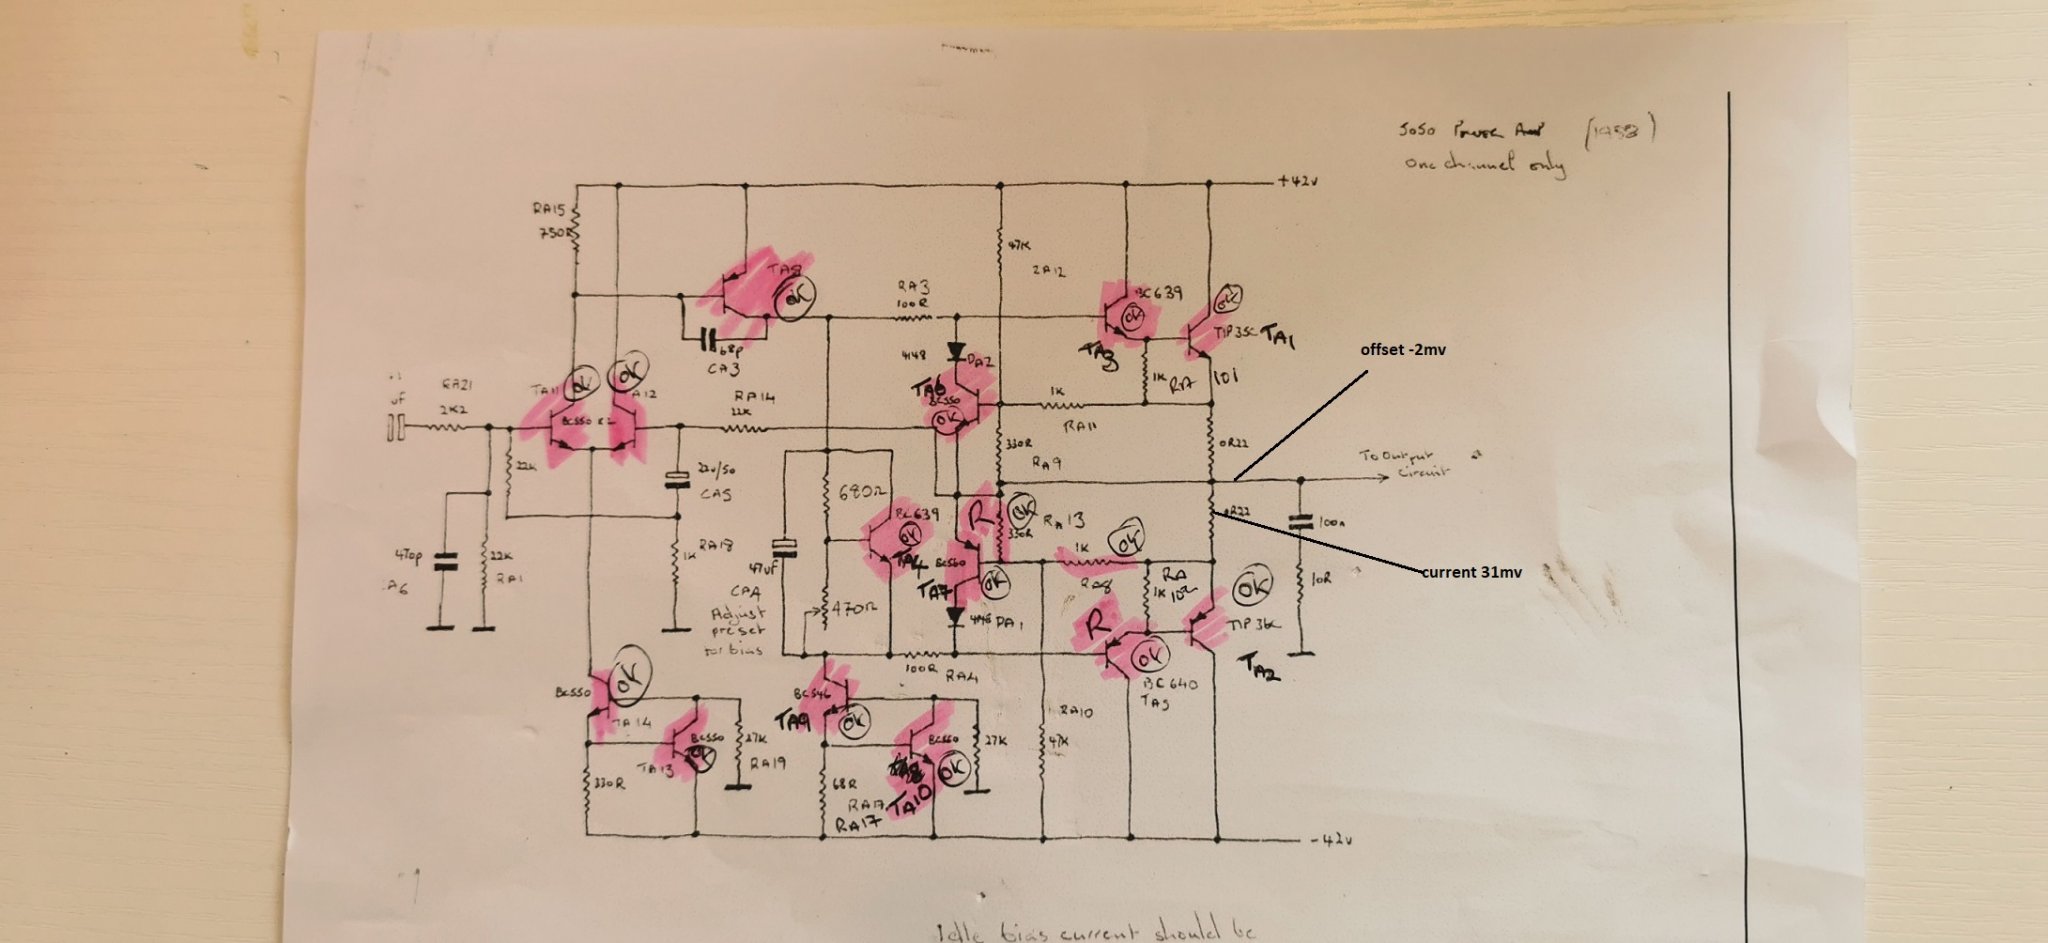 5050 Power Amp
one channel only
+42v
RA15
750R
TA8
OK
47K
RA3
100R
BC639
OK
OK
TIP35C TA1
offset -2mv
4148
DA2
TA3
68p
CA3
1K
RA
101
uf
RA21
2K2
TA11
OK
OK
A12
BC550 x2
RA14
22K
TA6
BC550
OK
1K
RA11
330R
RA9
0R22
To Output
circuit
22K
22u/50
CA5
680Ω
BC639
OK
TA4
R
OK
RA13
330R
0R22
100n
470p
A6
22K
RA1
1K
RA18
47uf
CA4
Adjust
preset
for bias
470Ω
BC560
TA7
OK
1K
OK
RA8
RA
1K
102
OK
TIP36C
TA2
10R
current 31mv
4148 DA1
R
OK
BC640
TA5
100R
RA4
BC550
OK
TA14
TA13
BC550
OK
27K
RA19
330R
BC546
TA9
OK
BC550
TA10
OK
27K
68R
RA17
RA17
RA10
47K
-42v
Idle bias current should be